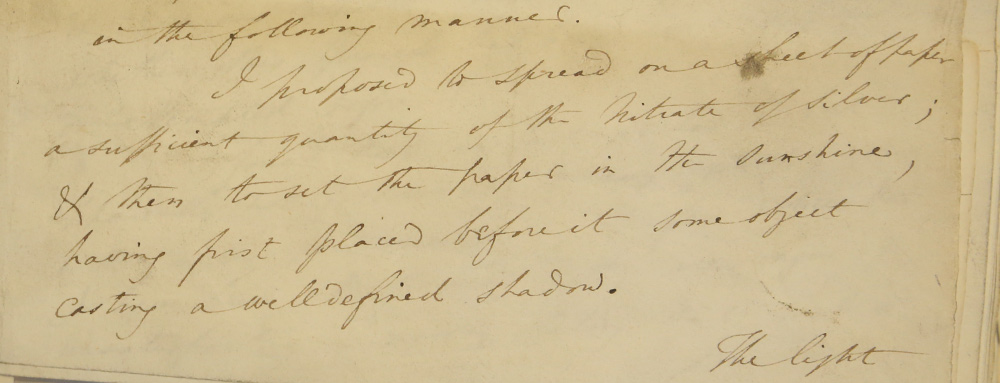 in the following manner.
I proposed to spread on a sheet of paper
a sufficient quantity of the Nitrate of Silver;
& then to set the paper in the sunshine,
having first placed before it some object
casting a well defined shadow.
The light